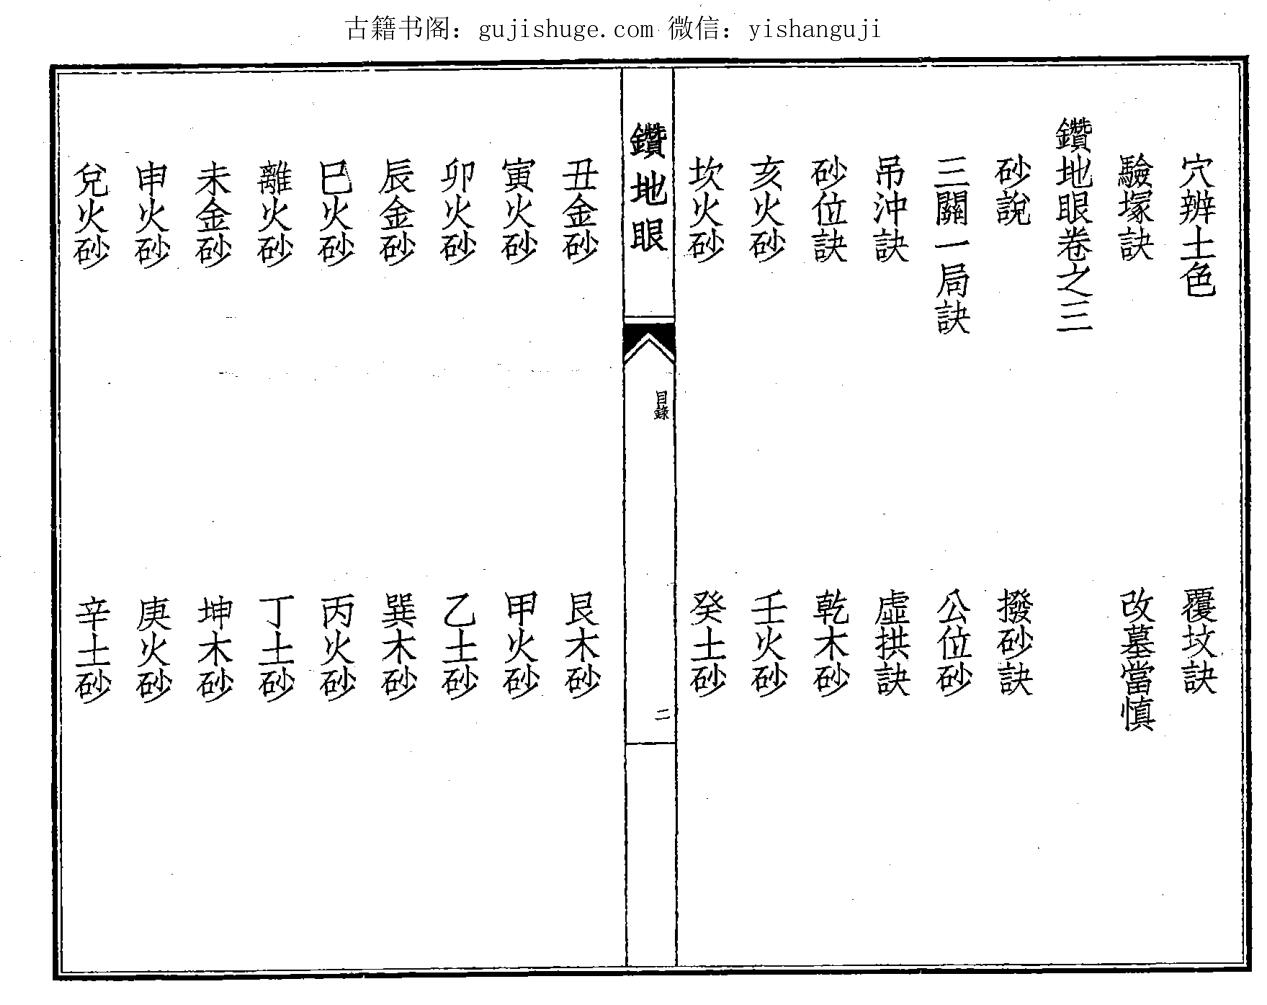 古籍书阁：gujishuge.com 微信：yishanguji
穴辨土色　覆坟訣
驗塚訣　改墓當慎
鑽地眼卷之三
砂說　撥砂訣
三關一局訣　公位砂
吊沖訣　虛拱訣
砂位訣　乾木砂
亥火砂　壬火砂
坎火砂　癸土砂
鑽地眼　目錄　二
丑金砂　艮木砂
寅火砂　甲火砂
卯火砂　乙土砂
辰金砂　巽木砂
巳火砂　丙火砂
離火砂　丁土砂
未金砂　坤木砂
申火砂　庚火砂
兌火砂　辛土砂